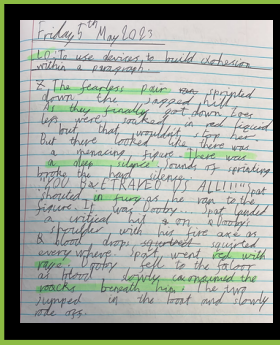 Friday 5th May 2023
LO: To use devices to build cohesion
within a paragraph.
The fearless pair ran sprinted
down the hall.
As they finally got down Zoes
legs were soaked in red liquid
but that wouldn't stop her.
But there looked like there was
a menacing figure. There was
a deep silence. Sounds of sprinting
broke the hard silence.
"YOU BETRAYED US ALL!!!!" Spat
shouted in fury as he ran to the
figure. It was Dooby... Spat landed
a critical hit on Dooby's
shoulder with his fire axe as
blood drops squirted
everywhere. Spat went red with
rage. Dooby fell to the floor
as blood slowly consumed the
rocks beneath him. The two
jumped in the boat and slowly
rode off.